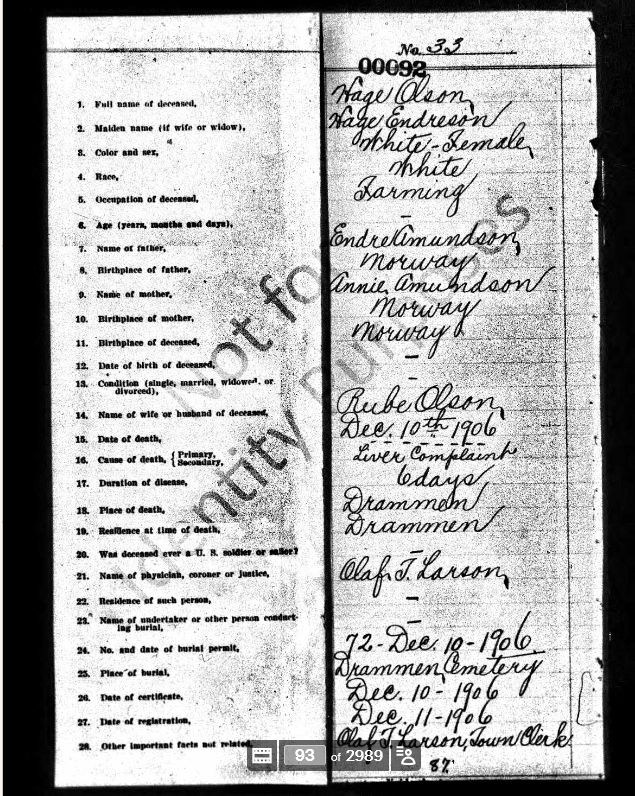 No. 33
00092
1. Full name of deceased, Hage Olson,
2. Maiden name (if wife or widow), Hage Endreson
3. Color and sex, White - Female,
4. Race, White
5. Occupation of deceased, Farming
6. Age (years, months and days), —
7. Name of father, Endre Amundson,
8. Birthplace of father, Norway
9. Name of mother, Annie Amundson
10. Birthplace of mother, Norway
11. Birthplace of deceased, Norway
12. Date of birth of deceased, —
13. Condition (single, married, widowed or
divorced), -
14. Name of wife or husband of deceased, Rube Olson,
15. Date of death, Dec. 10th 1906
16. Cause of death, { Primary, Liver Complaint
Secondary,
17. Duration of disease, 6 days
18. Place of death, Drammen
19. Residence at time of death, Drammen
20. Was deceased ever a U. S. soldier or sailor? —
21. Name of physician, coroner or justice, Olaf T. Larson,
22. Residence of such person, —
23. Name of undertaker or other person conduct-
ing burial, —
24. No. and date of burial permit, 72 - Dec. 10 - 1906
25. Place of burial, Drammen Cemetery
26. Date of certificate, Dec. 10 - 1906
27. Date of registration, Dec. 11 - 1906
28. Other important facts not related, Olaf T. Larson, Town Clerk
87
Not for
Identity Purposes
93 of 2989